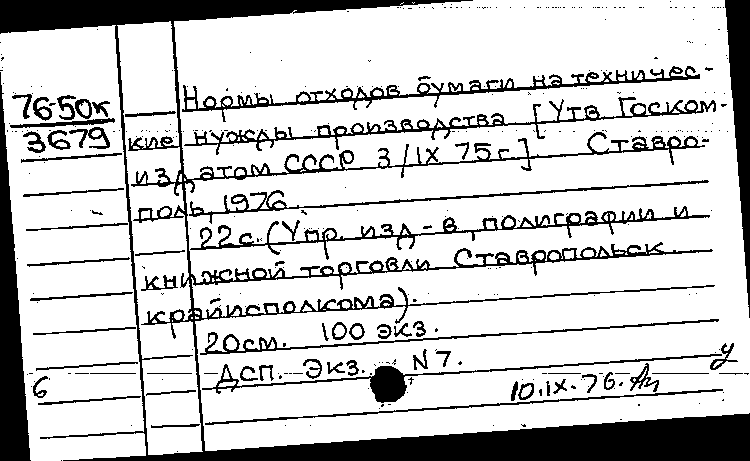 76-50к
3679
Нормы отходов бумаги на техничес-
кие нужды производства [Утв Госком-
издатом СССР 3/IX 75г.] Ставро-
поль, 1976.
22с. (Упр. изд-в, полиграфии и
книжной торговли Ставропольск.
крайисполкома).
20см. 100 экз.
ДСП. Экз. N 7.
6
10.IX.76.
у